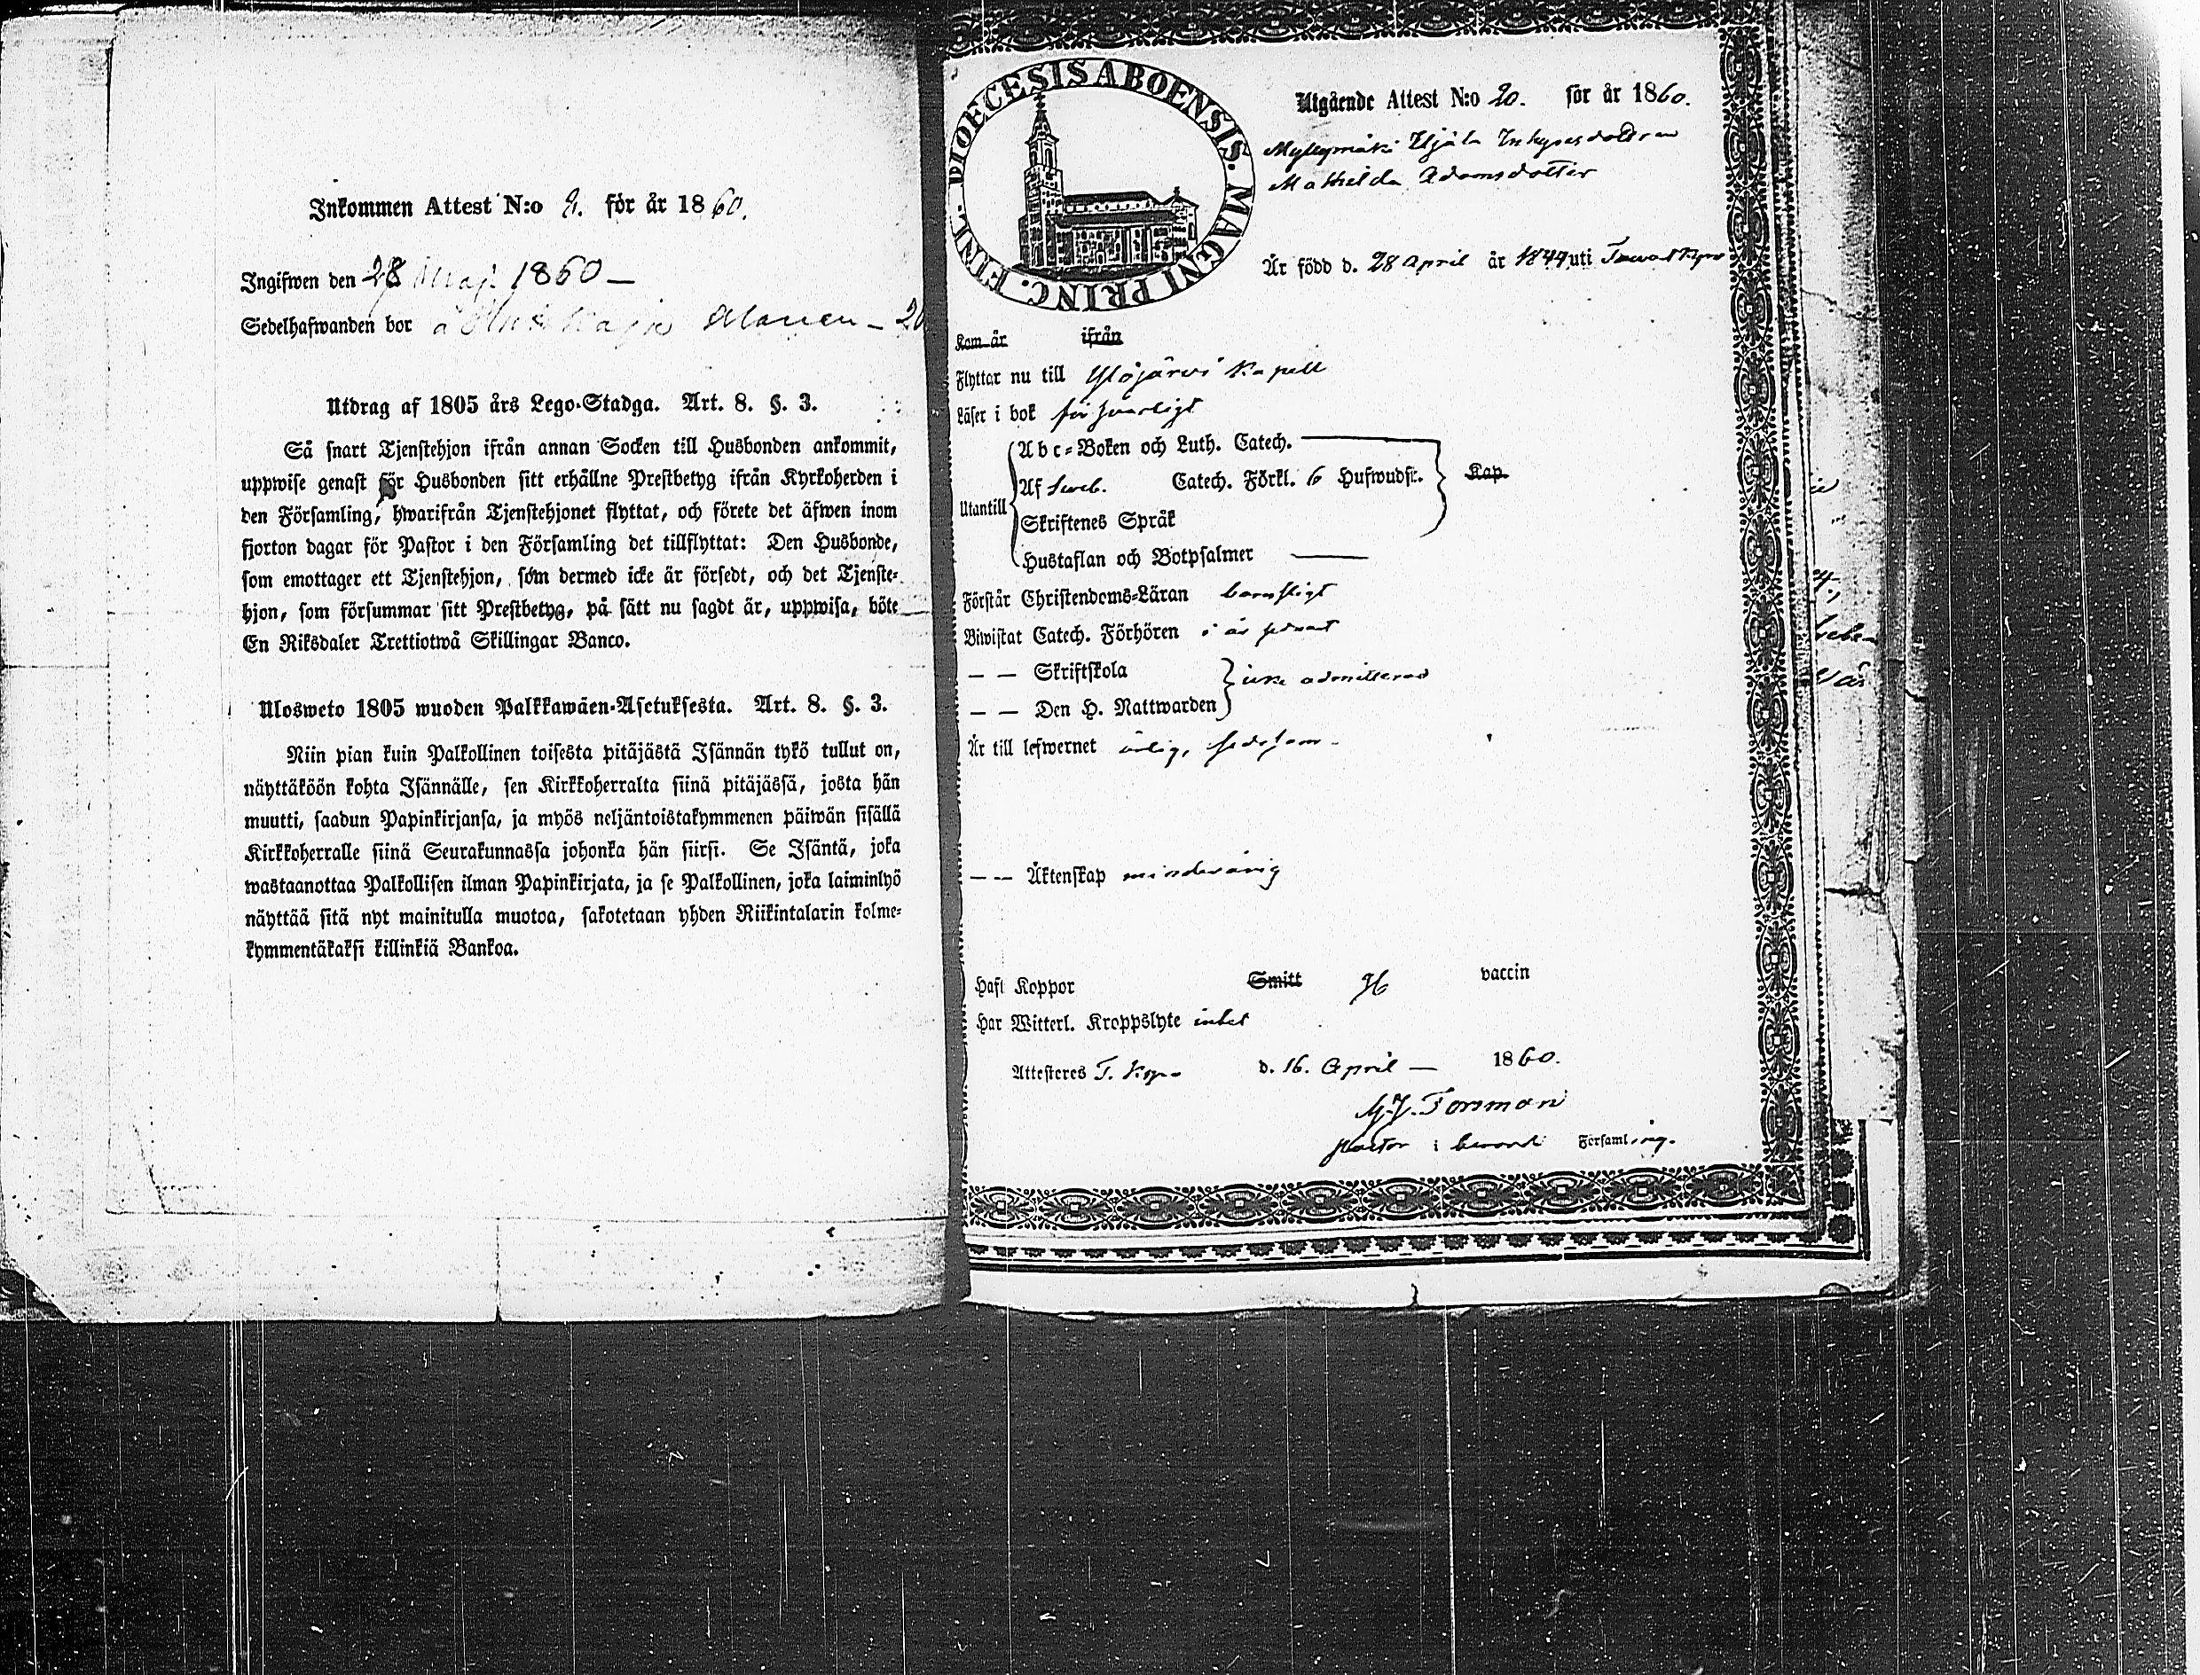 Inkommen Attest N:o 2. för år 1860.
Ingifwen den 28 Maji 1860 –
Sedelhafwanden bor å
Utdrag af 1805 års Lego-Stadga. Art. 8. §. 3.
Så snart Tjenstehjon ifrån annan Socken till Husbonden ankommit,
uppwise genast för Husbonden sitt erhållne Prestbetyg ifrån Kyrkoherden i
den Församling, hwarifrån Tjenstehjonet flyttat, och förete det äfwen inom
fjorton dagar för Pastor i den Församling det tillflyttat: Den Husbonde,
som emottager ett Tjenstehjon, som dermed icke är försedt, och det Tjenste-
hjon, som försummar sitt Prestbetyg, på sätt nu sagdt är, uppwisa, böte
En Riksdaler Trettiotwå Skillingar Banco.
Ulosweto 1805 wuoden Palkkawäen-Asetuksesta. Art. 8. §. 3.
Niin pian kuin Palkollinen toisesta pitäjästä Isännän tykö tullut on,
näyttäköön kohta Isännälle, sen Kirkkoherralta siinä pitäjässä, josta hän
muutti, saadun Papinkirjansa, ja myös neljäntoistakymmenen päiwän sisällä
Kirkkoherralle siinä Seurakunnassa johonka hän siirsi. Se Isäntä, joka
wastaanottaa Palkollisen ilman Papinkirjata, ja se Palkollinen, joka laiminlyö
näyttää sitä nyt mainitulla muotoa, sakotetaan yhden Riikintalarin kolme-
kymmentäkaksi killinkiä Bankoa.
DIOECESIS ABOENSIS. MAGNI PRINC. FINL.
Utgående Attest N:o 20. för år 1860.
Myllymäki Inhysesdottren
Mathilda Adamsdotter
Är född d. 28 April år 1844 uti Tavastkyro
Kom år ifrån
Flyttar nu till Ylöjärvi Kapell
Läser i bok försvarligt
Utantill
Abc-Boken och Luth. Catech.
Af Sveb. Catech. Förkl. 6 Hufwudst. Kap.
Skriftenes Språk
Hustaflan och Botpsalmer
Förstår Christendoms-Läran barnsligt
Biwistat Catech. Förhören i år sednast
— — Skriftskola
icke admitterad
— — Den H. Nattwarden
Är till lefwernet ärlig, sedesam.
— — Äktenskap minderårig
Haft Koppor Smitt vaccin
Har Witterl. Kroppslyte intet
Attesteres T. Kyro d. 16. April — 1860.
Forsman
Pastor i Församling.